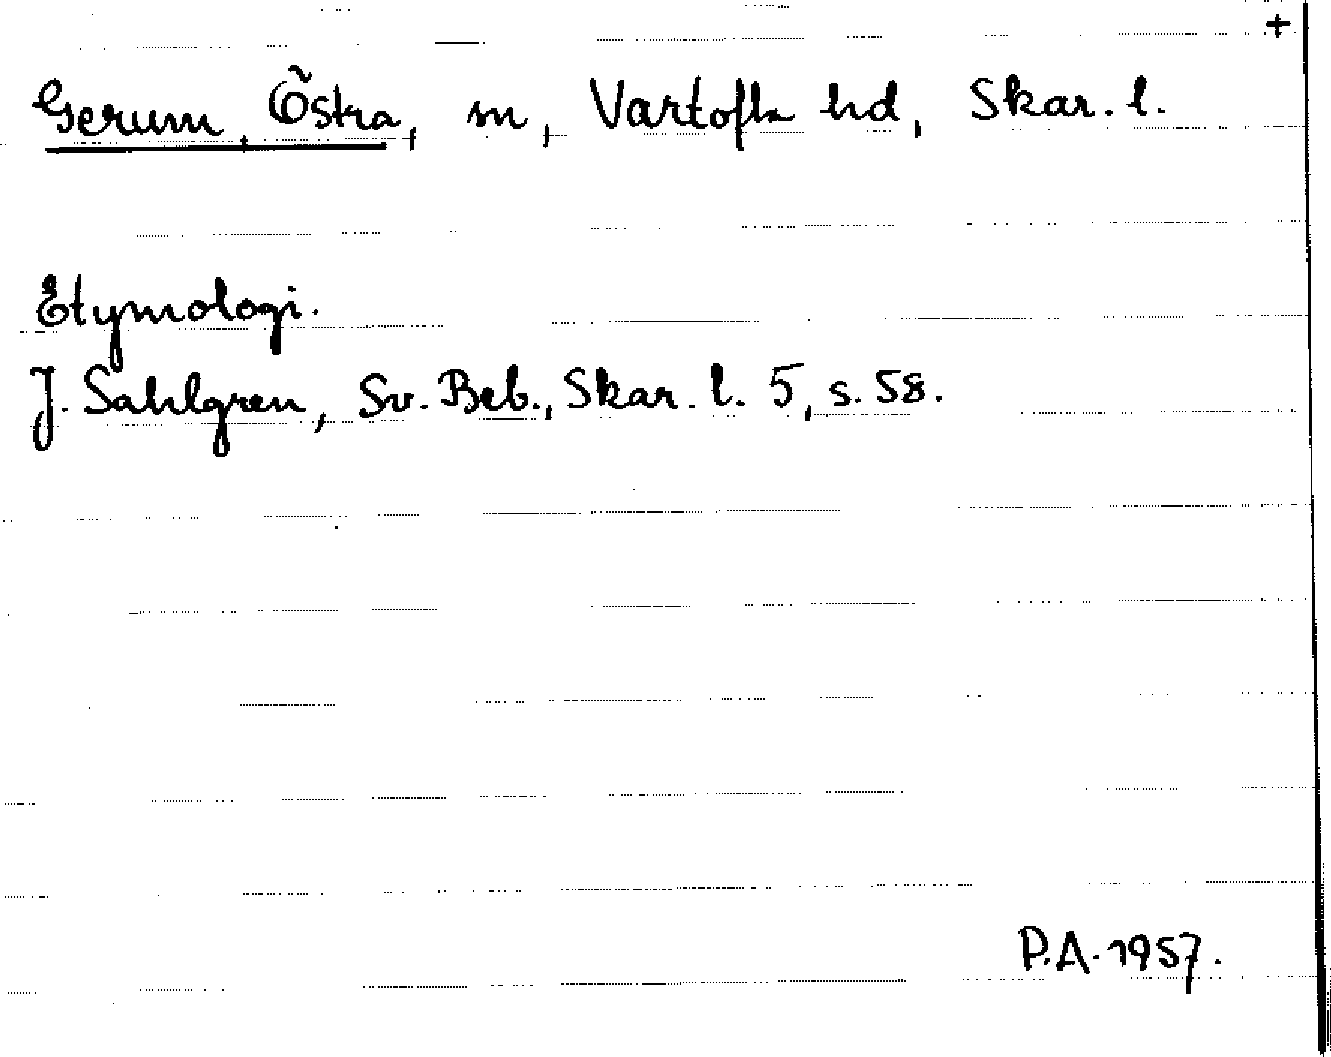 +
Gerum, Östra, sn, Vartofta hd, Skar. l.
Etymologi.
J. Sahlgren, Sv. Beb., Skar. l. 5, s. 58.
P.A. 1957.